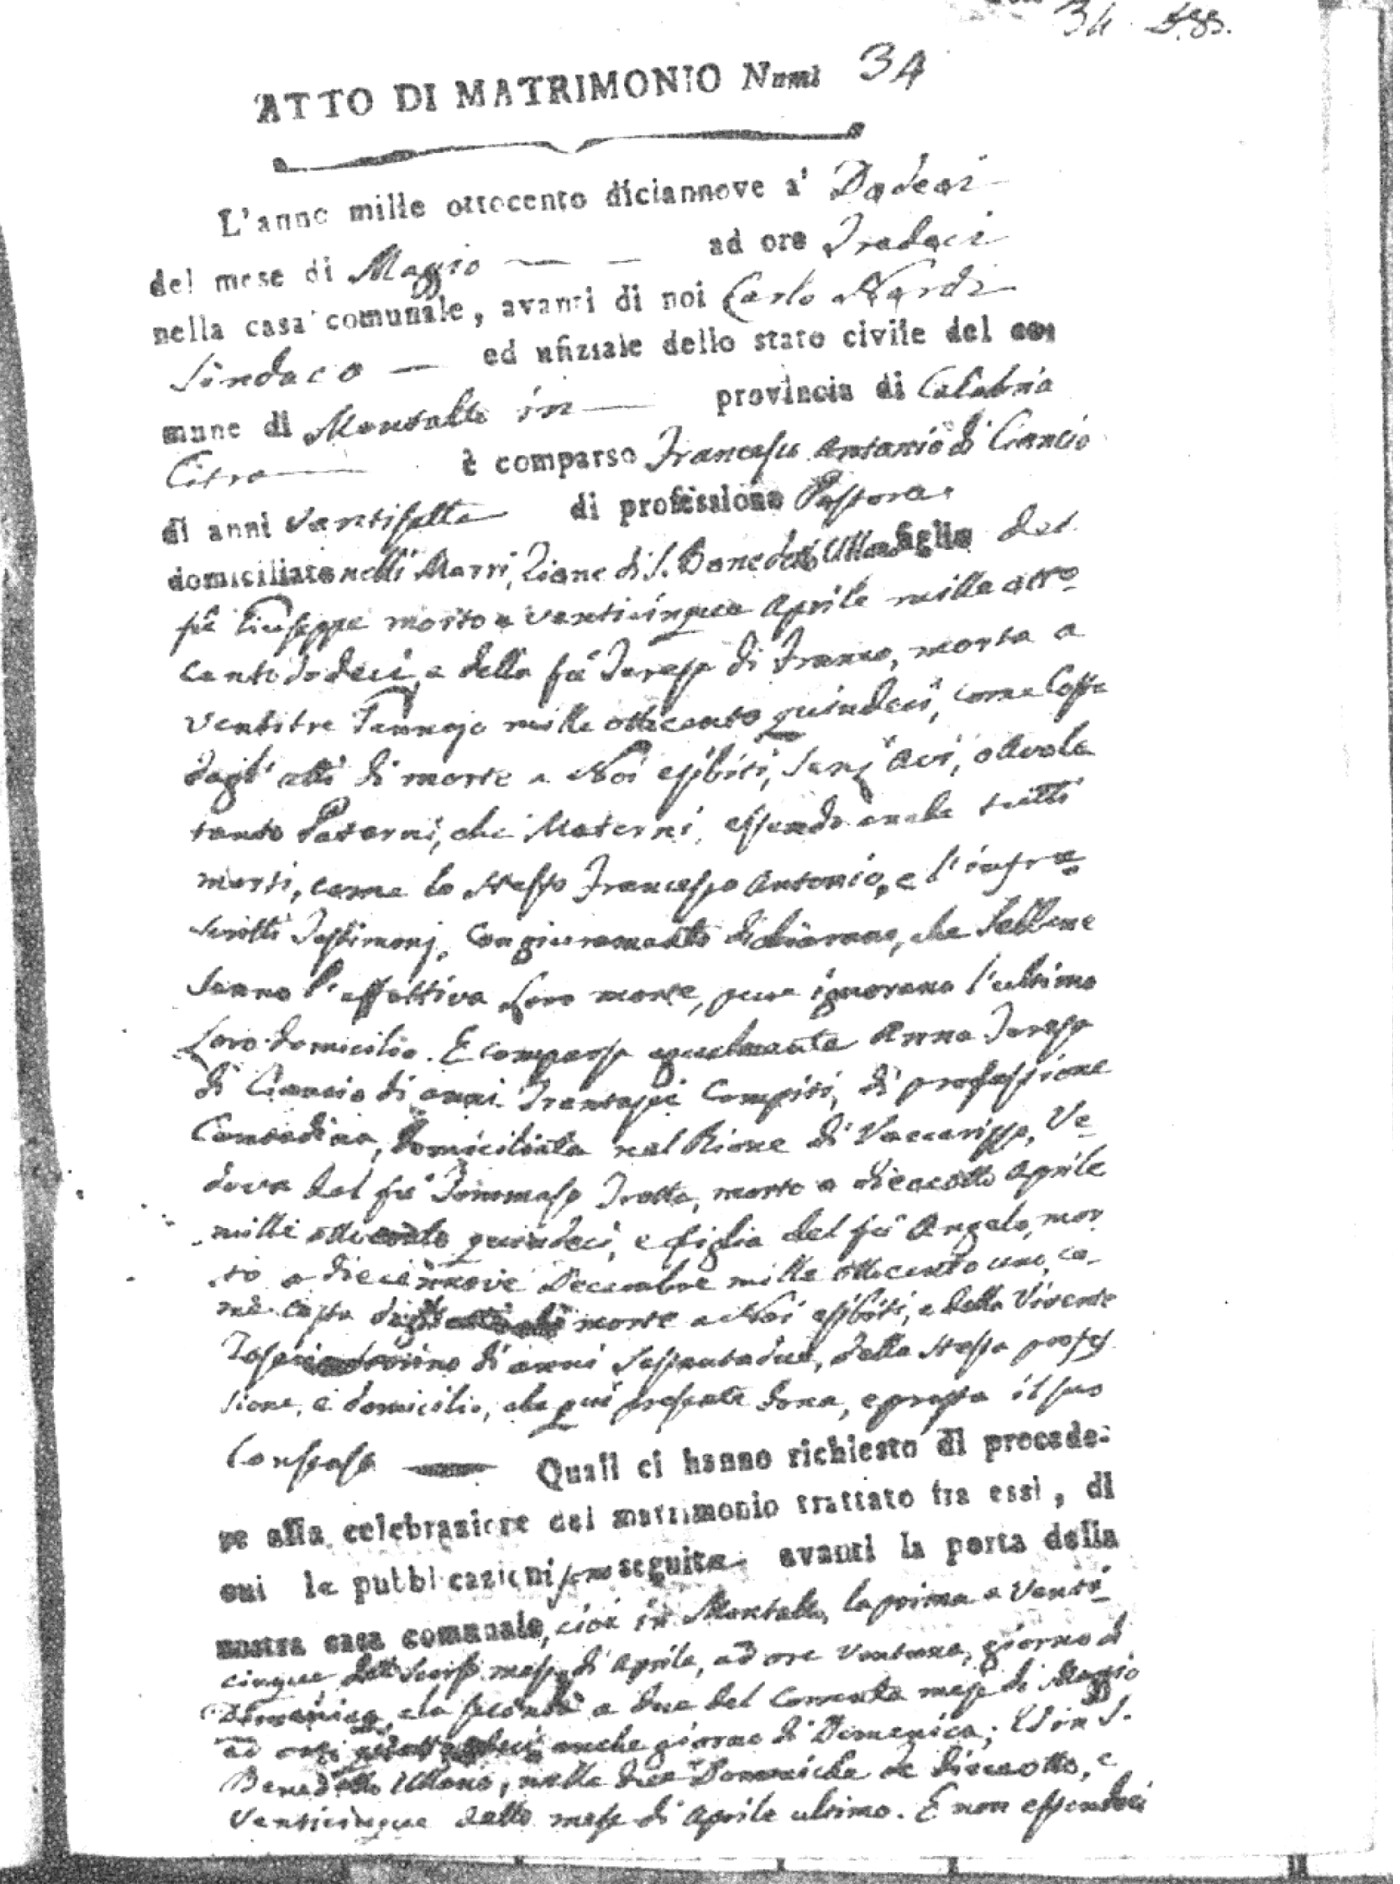 34
ATTO DI MATRIMONIO Num! 34
L'anno mille ottocento diciannove a' Dodeci
del mese di Maggio ad ore Tredeci
nella casa comunale, avanti di noi Carlo Nardi
Sindaco ed ufiziale dello stato civile del co-
mune di Montalto in provincia di Calabria
Citra è comparso Francesco Antonio di Ciancio
di anni Ventisette di professione Pastore
domiciliato nelli Marri, Rione di S. Benedetto Ullano figlio del
fù Giuseppe morto a venticinque Aprile mille otto-
cento dodeci, e della fù Teresa di Franco, morta a
ventitre Gennajo mille ottocento quindeci, come Costa
dagl' atti di morte a Noi esibiti, senz' Avi, o Avole
tanto Paterni, che Materni, essendo anche tutti
morti, come lo stesso Francesco Antonio, e l'infra-
scritti Testimonj, con giuramento dichiarano, che sebbene
sanno l'effettiva Loro morte, pure ignorano l'ultimo
Loro domicilio. E comparsa egualmente Anna Teresa
di Ciancio di anni Trentasei Compiti, di professione
Contadina, domiciliata nel Rione di Vaccarizzo, Ve-
dova del fù Tommaso Trotta, morto a dieceotto Aprile
mille ottocento quindeci, e figlia del fù Angelo, mor-
to a diecennove Decembre mille ottocento uno, co-
me costa dagli atti di morte a Noi esibiti, e della Vivente
di anni Sessantadue, della stessa profes-
sione, e domicilio, che quì presente dona, e presta il suo
Consenso Quali ci hanno richiesto di procede-
re alla celebrazione del matrimonio trattato fra essi, di
cui le pubblicazioni sono seguite avanti la porta della
nostra casa comunale, cioè in Montalto, la prima a venti-
cinque dello scorso mese di Aprile, ad ore ventuna, giorno di
Domenica, e la seconda a due del Corrente mese di Maggio
ad ore anche giorno di Domenica; Ed in S.
Benedetto Ullano, nelle due Domeniche de dieceotto, e
Venticinque dello mese di Aprile ultimo. E non essendoci